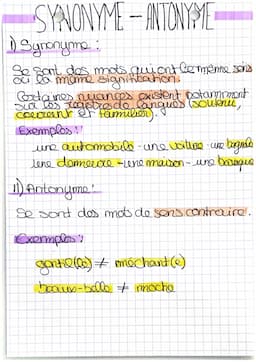 SYNONYME - ANTONYME
I) Synonyme :
Se sont des mots qui ont le même sens
ou la même signification.
Certaines nuances existent notamment
sur les registres de langues (soutenu,
courant et familier).
Exemples :
une automobile - une voiture - une bagnole
une demeure - une maison - une baraque
II) Antonyme :
Se sont des mots de sens contraire.
Exemples :
gentil(le) ≠ méchant(e)
beaux-belle ≠ moche